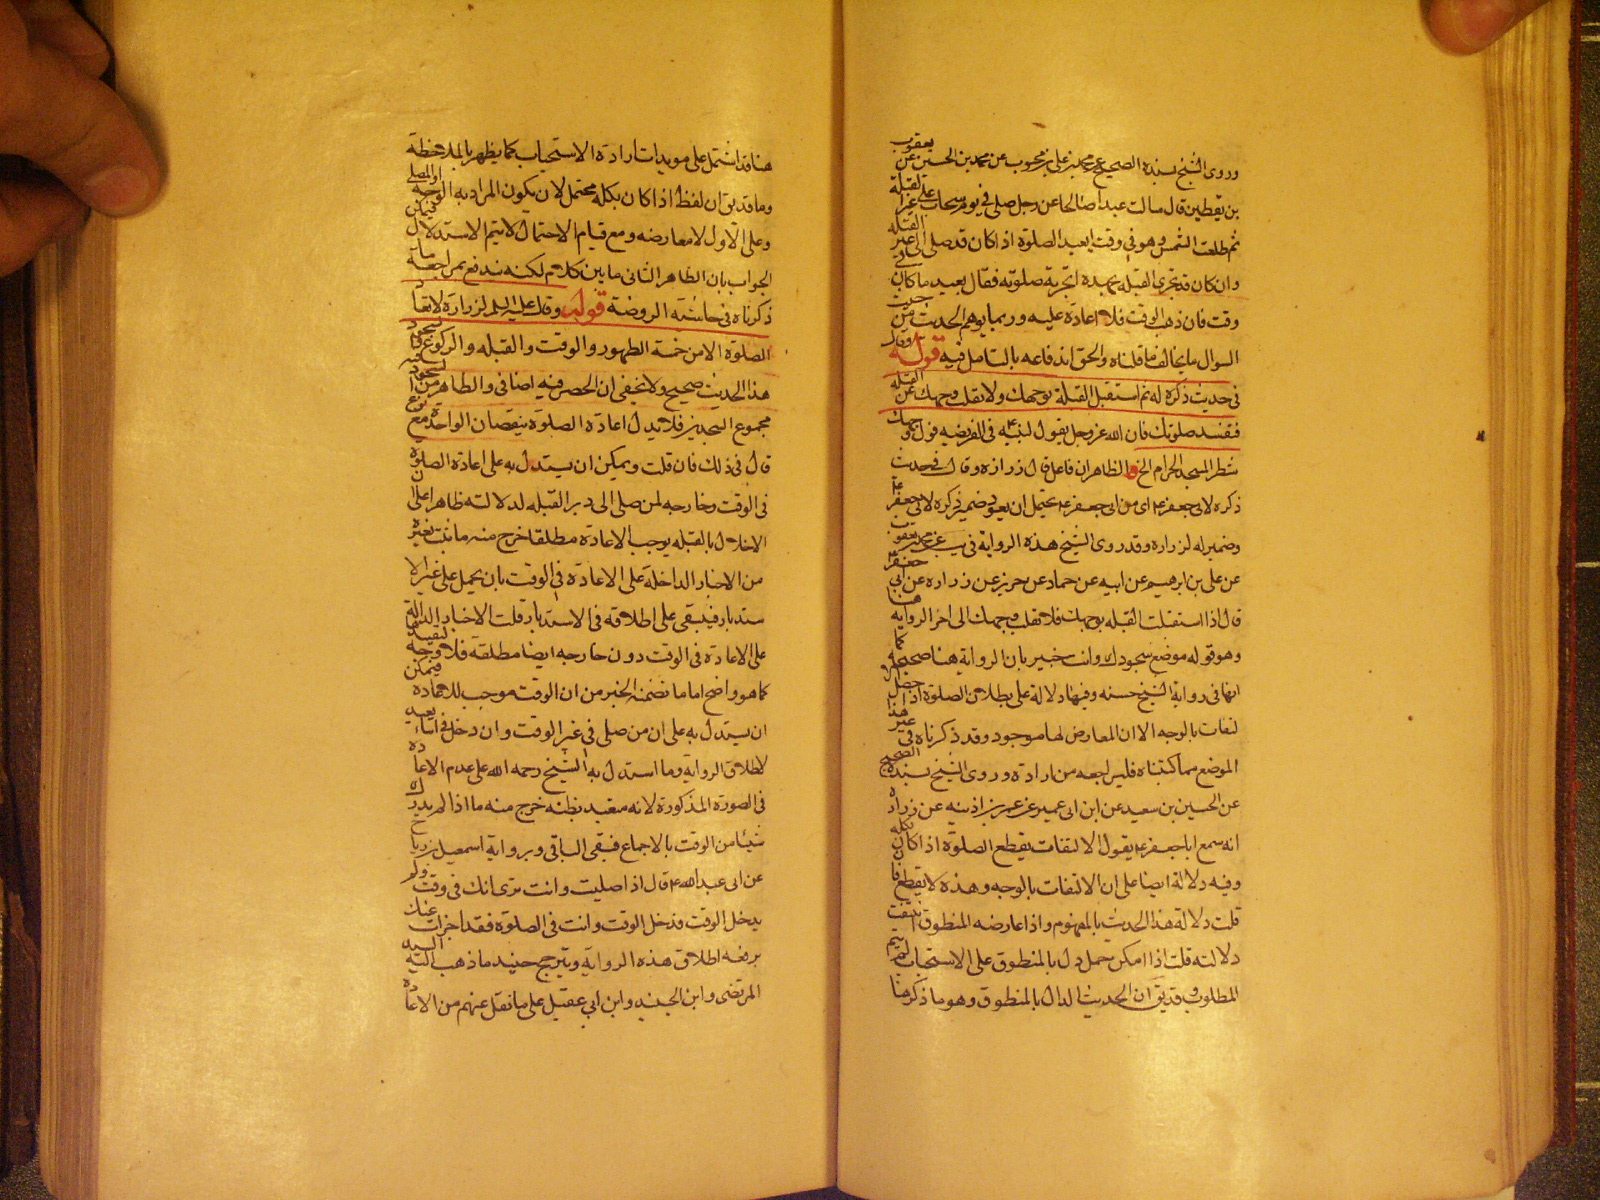 وروى الشيخ بسنده الصحيح عن محمد بن علي بن محبوب عن محمد بن الحسين عن يعقوب
بن يقطين قال سالت عبدا صالحا عن رجل صلى في يوم سحاب على غير القبلة
ثم طلعت الشمس وهو في وقت ايعيد الصلوة اذا كان قد صلى الى غير القبلة
وان كان قد تحرى القبلة بجهده اتجزيه صلوته فقال يعيد ما كان في
وقت فان ذهب الوقت فلا اعادة عليه وربما يوهم الحديث من حيث
السوال ما يخالف ما قلناه والحق اندفاعه بالتامل فيه قوله وقال
في حديث ذكره له ثم استقبل القبلة بوجهك ولا تقلب وجهك عن القبلة
فتفسد صلوتك فان الله عز وجل يقول لنبيه ع في الفريضه فول وجهك
شطر المسجد الحرام الخ والظاهر ان فاعل قال زرارة وقال في حديث
ذكره لابي جعفر ع اي من ابي جعفر ع يحتمل ان يعود ضمير ذكره لابي جعفر ع
وضمير له لزراره وقد روى الشيخ هذه الرواية في يب عن محمد بن يعقوب
عن علي بن ابرهيم عن ابيه عن حماد عن حريز عن زراره عن ابي جعفر ع
قال اذا استقبلت القبله بوجهك فلا تقلب وجهك الى اخر الروايه هنا
وهو قوله موضع سجودك وانت خبير بان الرواية هنا صحيحه كما
انها في رواية الشيخ حسنه وفيها دلالة على بطلان الصلوة اذا حصل
لتفات بالوجه الا ان المعارض لها موجود وقد ذكرناه في غير هذا
الموضع مما كتبناه فليراجعه من اراده وروى الشيخ بسنده الصحيح
عن الحسين بن سعيد عن ابن ابي عمير عن عمر بن اذينه عن زراره
انه سمع ابا جعفر ع يقول الالتفات يقطع الصلوة اذا كان بكله
وفيه دلالة ايضا على ان الالتفات بالوجه وحده لا يقطع فان
قلت دلالة هذا الحديث بالمفهوم واذا عارضه المنطوق انتفت
دلالته قلت اذا امكن حمل دل بالمنطوق على الاستحباب لم يتم
المطلوب وقد يق ان الحديث الدال بالمنطوق وهو ما ذكر هنا
هنا قد اشتمل على مويدات ارادة الاستحباب كما يظهر بالملاحظة
وما قد يق ان لفظ اذا كان بكله محتمل لان يكون المراد به الوجه او المصلي
وعلى الاول لا معارضه ومع قيام الاحتمال لا يتم الاستدلال فيمكن
الجواب بان الظاهر الثاني ما بين كلامهم لكنه يندفع بمراجعة ما
ذكرناه في حاشية الروضة قوله وقال عليه السلم لزرارة لا تعاد
الصلوة الا من خمسة الطهور والوقت والقبله والركوع والسجود
هذا الحديث صحيح ولا يخفى ان الحصر فيه اضافي والظاهر من السجود
مجموع السجدتين فلا يدل اعادة الصلوة بنقصان الواحدة مع
قال في ذلك فان قلت ويمكن ان يستدل به على اعادة الصلوة
في الوقت وخارجه لمن صلى الى دبر القبله لدلالته ظاهرا على ان
الاخلال بالقبله يوجب الاعادة مطلقا خرج منه ما ثبت بغيره
من الاخبار الداخلة على الاعادة في الوقت بان يحمل على غير الا
ستدبار فيبقى على اطلاقه في الاستدبار قلت الاخبار الدالة
على الاعادة في الوقت دون خارجه ايضا مطلقه فلا وجه لتقييدها
كما هو واضح اما ما تضمنه الخبر من ان الوقت موجب للاعادة فيمكن
ان يستدل به على ان من صلى في غير الوقت وان دخل في اثنائه يعيد
لاطلاق الرواية وما استدل به الشيخ رحمه الله على عدم الاعادة
في الصورة المذكورة لانه متعبد بظنه خرج منه ما اذا لم يدرك
شيئا من الوقت بالاجماع فبقي الباقي وبرواية اسمعيل بن رباح
عن ابي عبد الله ع قال اذا صليت وانت ترى انك في وقت ولم
يدخل الوقت فدخل الوقت وانت في الصلوة فقد اجزأت عنك
يرفعه اطلاق هذه الرواية ويترجح حينئذ ما ذهب اليه السيد
المرتضى وابن الجنيد وابن ابي عقيل على ما نقل عنهم من الاعادة